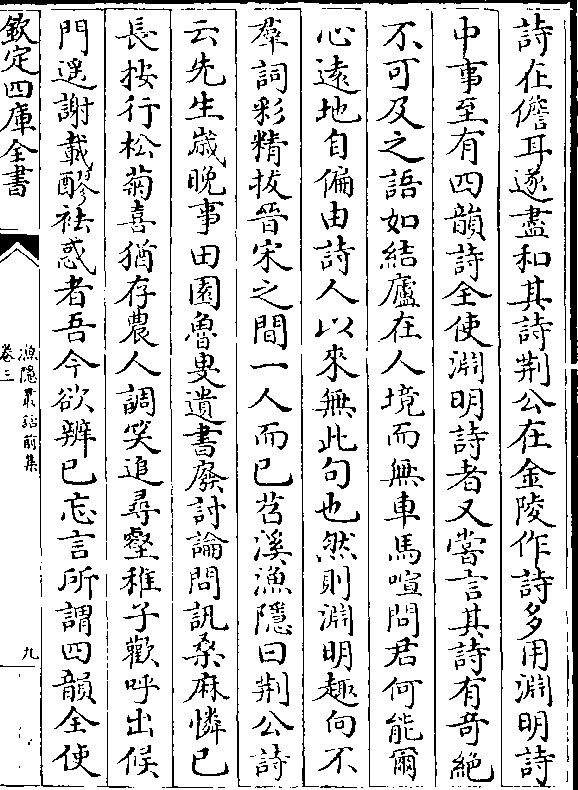 詩在儋耳遂盡和其詩荆公在金陵作詩多用淵明詩
中事至有四韻詩全使淵明詩者又嘗言其詩有奇絶
不可及之語如結廬在人境而無車馬喧問君何能爾
心逺地自偏由詩人以來無此句也然則淵明趣向不
羣詞彩精拔晉宋之間一人而已苕溪漁隱曰荆公詩
云先生嵗晚事田園魯叟遺書廢討論問訊桑麻憐已
長按行松菊喜猶存農人調笑追尋壑稚子歡呼出候
門遥謝載醪祛惑者吾今欲辨已忘言所謂四韻全使
欽定四庫全書
漁隱叢話前集
卷三
九